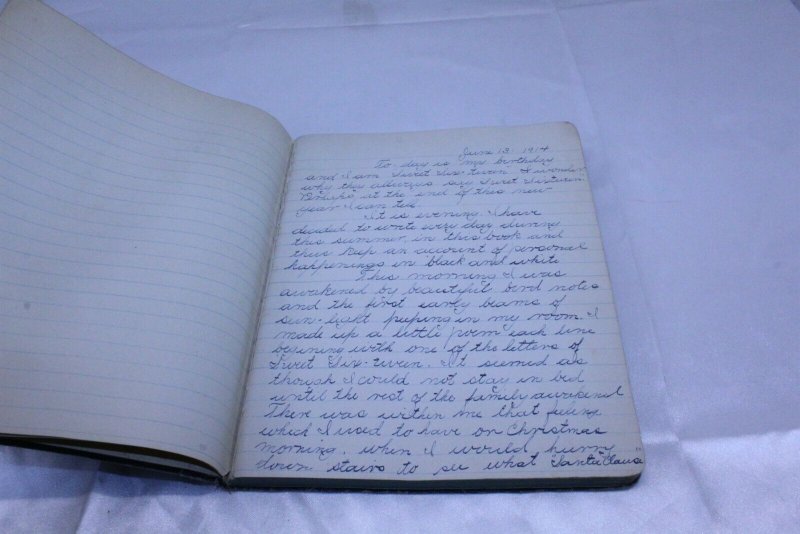 June 13, 1914
To-day is my birthday
and I am Sweet Six-teen. I wonder
why they always say Sweet Sixteen.
Perhaps at the end of this new
year I can tell.
It is evening. I have
decided to write every day during
this summer, in this book and
thus keep an account of personal
happenings in black and white.
This morning I was
awakened by beautiful bird notes
and the first early beams of
sun-light peeping in my room. I
made up a little poem each line
begining with one of the letters of
Sweet Six-teen. It seemed as
though I could not stay in bed
until the rest of the family awakened.
There was within me that feeling
which I used to have on Christmas
morning, when I would hurry
down stairs to see what "Santa Claus"